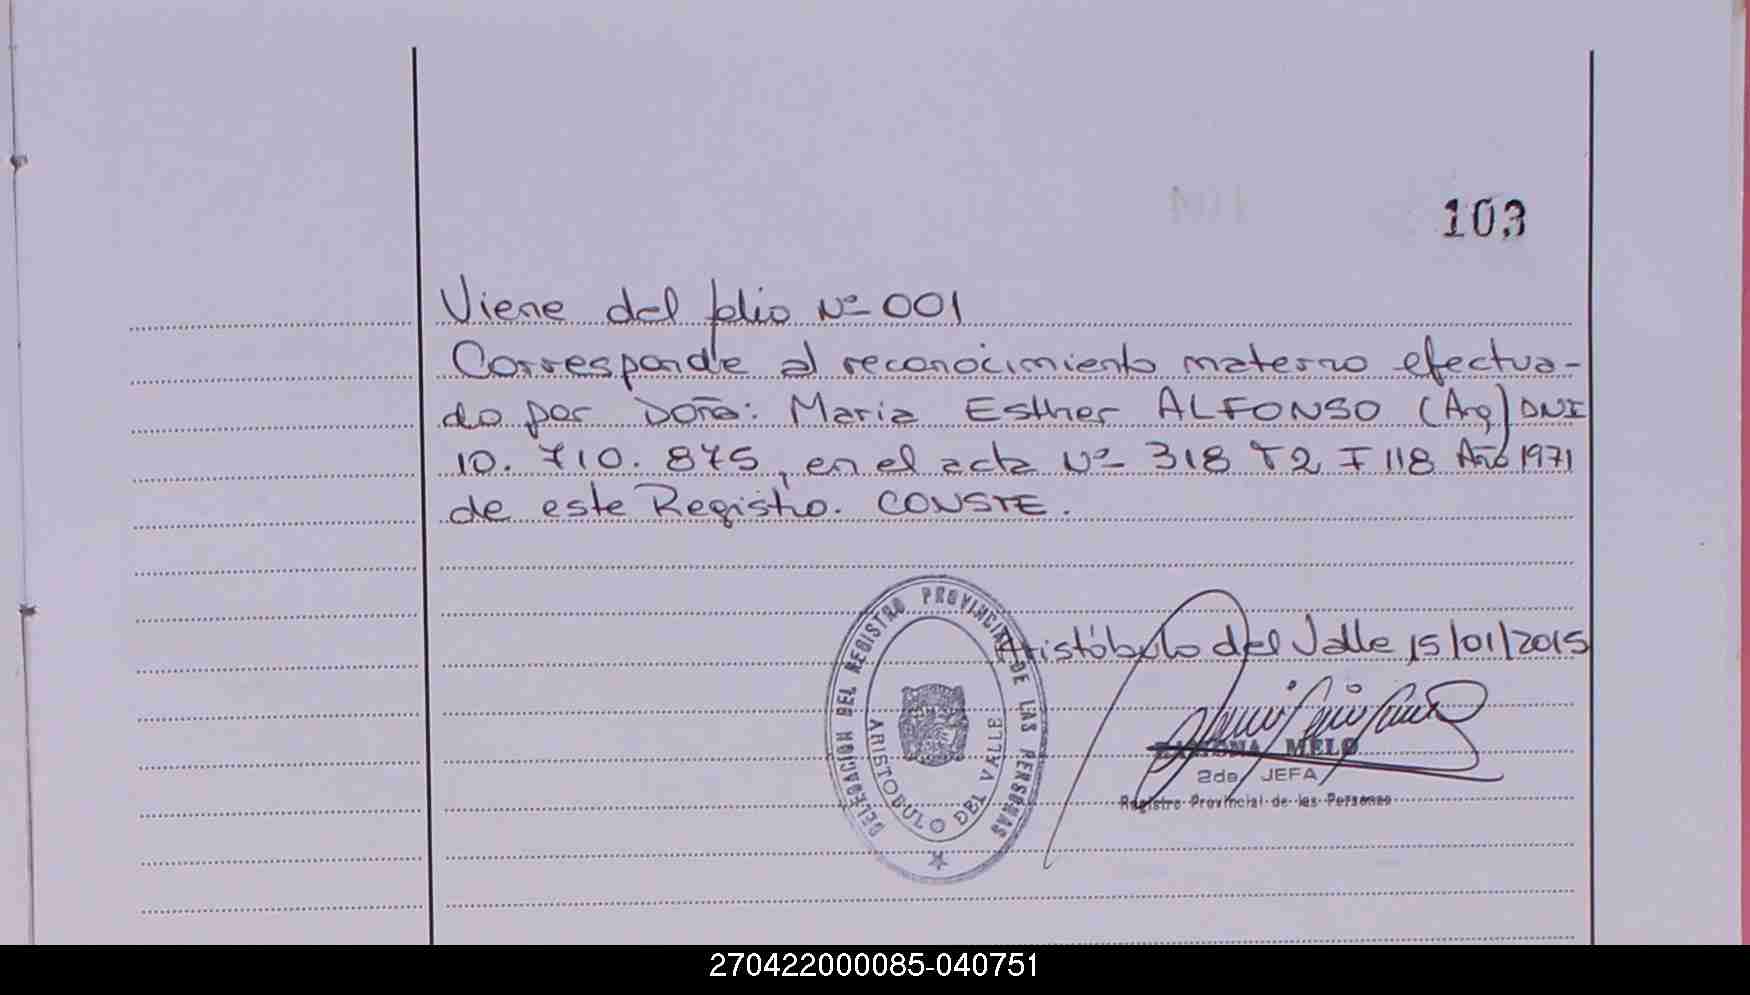 103
Viene del folio Nº 001
Corresponde al reconocimiento materno efectua-
do por Doña: Maria Esther ALFONSO (Arg) DNI
10. 710. 875, en el acta Nº 318 T2 F 118 Año 1971
de este Registro. CONSTE.
DELEGACION DEL REGISTRO PROVINCIAL DE LAS PERSONAS
ARISTOBULO DEL VALLE
Aristóbulo del Valle 15/01/2015
RAMONA MELO
2da JEFA
Registro Provincial de las Personas
270422000085-040751